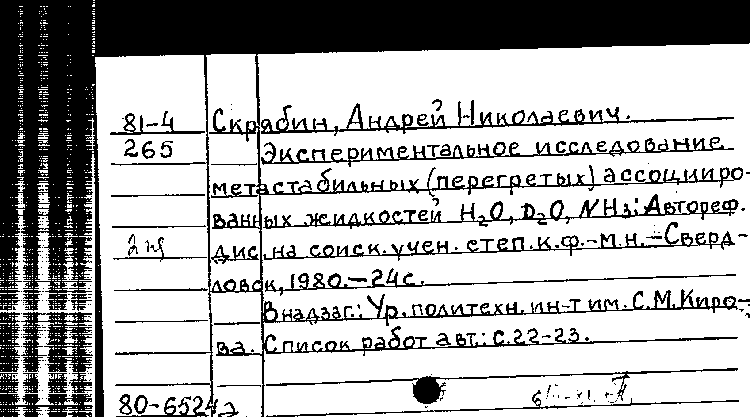 81-4 Скрябин, Андрей Николаевич.
265 Экспериментальное исследование
метастабильных (перегретых) ассоцииро-
ванных жидкостей H₂O, D₂O, NH₃: Автореф.
дис. на соиск. учен. степ. к.ф.-м.н. - Сверд-
ловск, 1980. - 24 с.
В надзаг.: Ур. политехн. ин-т им. С.М. Киро-
ва. Список работ авт.: с. 22-23.